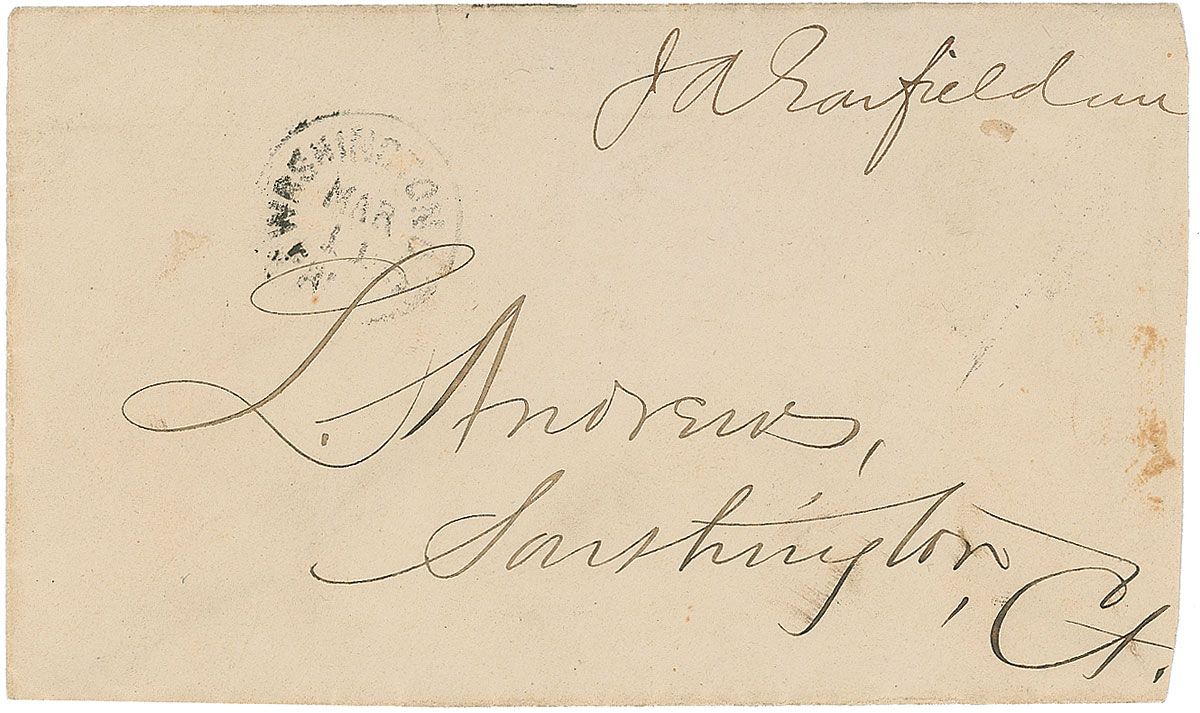 J A Garfield m c
WASHINGTON
MAR
L. Andrews,
Southington,
Ct.